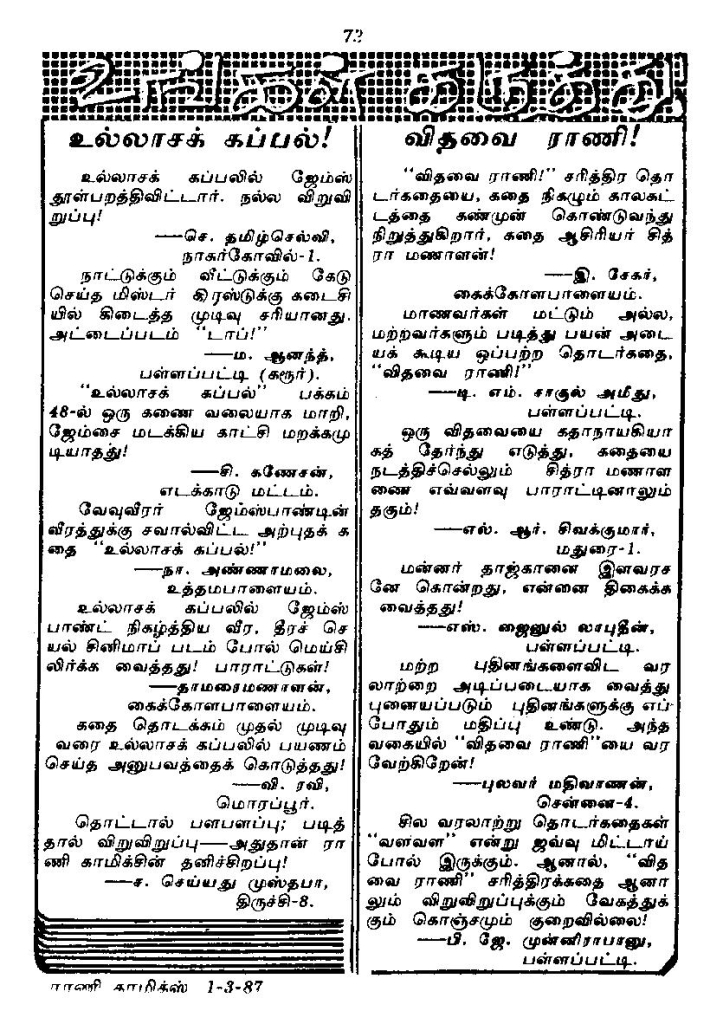 72
உங்கள் கருத்து
உல்லாசக் கப்பல்!
உல்லாசக் கப்பலில் ஜேம்ஸ்
தூள்பறத்திவிட்டார். நல்ல விறுவி
றுப்பு!
—செ. தமிழ்செல்வி,
நாகர்கோவில்-1.
நாட்டுக்கும் வீட்டுக்கும் கேடு
செய்த மிஸ்டர் கிரஸ்டுக்கு கடைசி
யில் கிடைத்த முடிவு சரியானது.
அட்டைப்படம் "டாப்!"
—ம. ஆனந்த்,
பள்ளப்பட்டி (கரூர்).
"உல்லாசக் கப்பல்" பக்கம்
48-ல் ஒரு கணை வலையாக மாறி,
ஜேம்சை மடக்கிய காட்சி மறக்கமு
டியாதது!
—சி. கணேசன்,
எடக்காடு மட்டம்.
வேவுவீரர் ஜேம்ஸ்பாண்டின்
வீரத்துக்கு சவால்விட்ட அற்புதக் க
தை "உல்லாசக் கப்பல்!"
—நா. அண்ணாமலை,
உத்தமபாளையம்.
உல்லாசக் கப்பலில் ஜேம்ஸ்
பாண்ட் நிகழ்த்திய வீர, தீரச் செ
யல் சினிமாப் படம் போல் மெய்சி
லிர்க்க வைத்தது! பாராட்டுகள்!
—தாமரைமணாளன்,
கைக்கோளபாளையம்.
கதை தொடக்கம் முதல் முடிவு
வரை உல்லாசக் கப்பலில் பயணம்
செய்த அனுபவத்தைக் கொடுத்தது!
—வி. ரவி,
மொரப்பூர்.
தொட்டால் பளபளப்பு; படித்
தால் விறுவிறுப்பு—அதுதான் ரா
ணி காமிக்சின் தனிச்சிறப்பு!
—ச. செய்யது முஸ்தபா,
திருச்சி-8.
விதவை ராணி!
"விதவை ராணி!" சரித்திர தொ
டர்கதையை, கதை நிகழும் காலகட்
டத்தை கண்முன் கொண்டுவந்து
நிறுத்துகிறார், கதை ஆசிரியர் சித்
ரா மணாளன்!
—இ. சேகர்,
கைக்கோளபாளையம்.
மாணவர்கள் மட்டும் அல்ல,
மற்றவர்களும் படித்து பயன் அடை
யக் கூடிய ஒப்பற்ற தொடர்கதை,
"விதவை ராணி!"
—டி. எம். சாகுல் அமீது,
பள்ளப்பட்டி.
ஒரு விதவையை கதாநாயகியா
கத் தேர்ந்து எடுத்து, கதையை
நடத்திச்செல்லும் சித்ரா மணாள
ணை எவ்வளவு பாராட்டினாலும்
தகும்!
—எல். ஆர். சிவக்குமார்,
மதுரை-1.
மன்னர் தாஜ்கானை இளவரச
னே கொன்றது, என்னை திகைக்க
வைத்தது!
—எஸ். ஜைனுல் லாபுதீன்,
பள்ளப்பட்டி.
மற்ற புதினங்களைவிட வர
லாற்றை அடிப்படையாக வைத்து
புனையப்படும் புதினங்களுக்கு எப்
போதும் மதிப்பு உண்டு. அந்த
வகையில் "விதவை ராணி"யை வர
வேற்கிறேன்!
—புலவர் மதிவாணன்,
சென்னை-4.
சில வரலாற்று தொடர்கதைகள்
"வளவள" என்று ஜவ்வு மிட்டாய்
போல் இருக்கும். ஆனால், "வித
வை ராணி" சரித்திரக்கதை ஆனா
லும் விறுவிறுப்புக்கும் வேகத்துக்
கும் கொஞ்சமும் குறைவில்லை!
—பி. ஜே. முன்னிராபானு,
பள்ளப்பட்டி.
ராணி காமிக்ஸ் 1-3-87